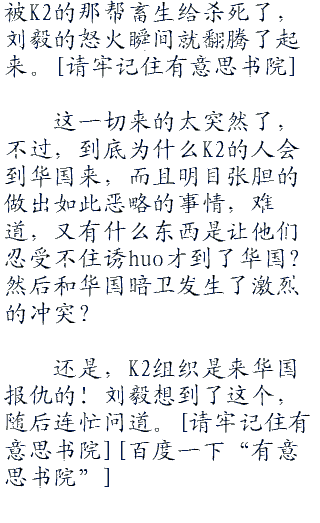 被K2的那帮畜生给杀死了，
刘毅的怒火瞬间就翻腾了起
来。[请牢记住有意思书院]
这一切来的太突然了，
不过，到底为什么K2的人会
到华国来，而且明目张胆的
做出如此恶略的事情，难
道，又有什么东西是让他们
忍受不住诱huo才到了华国？
然后和华国暗卫发生了激烈
的冲突？
还是，K2组织是来华国
报仇的！刘毅想到了这个，
随后连忙问道。[请牢记住有
意思书院][百度一下“有意
思书院”]